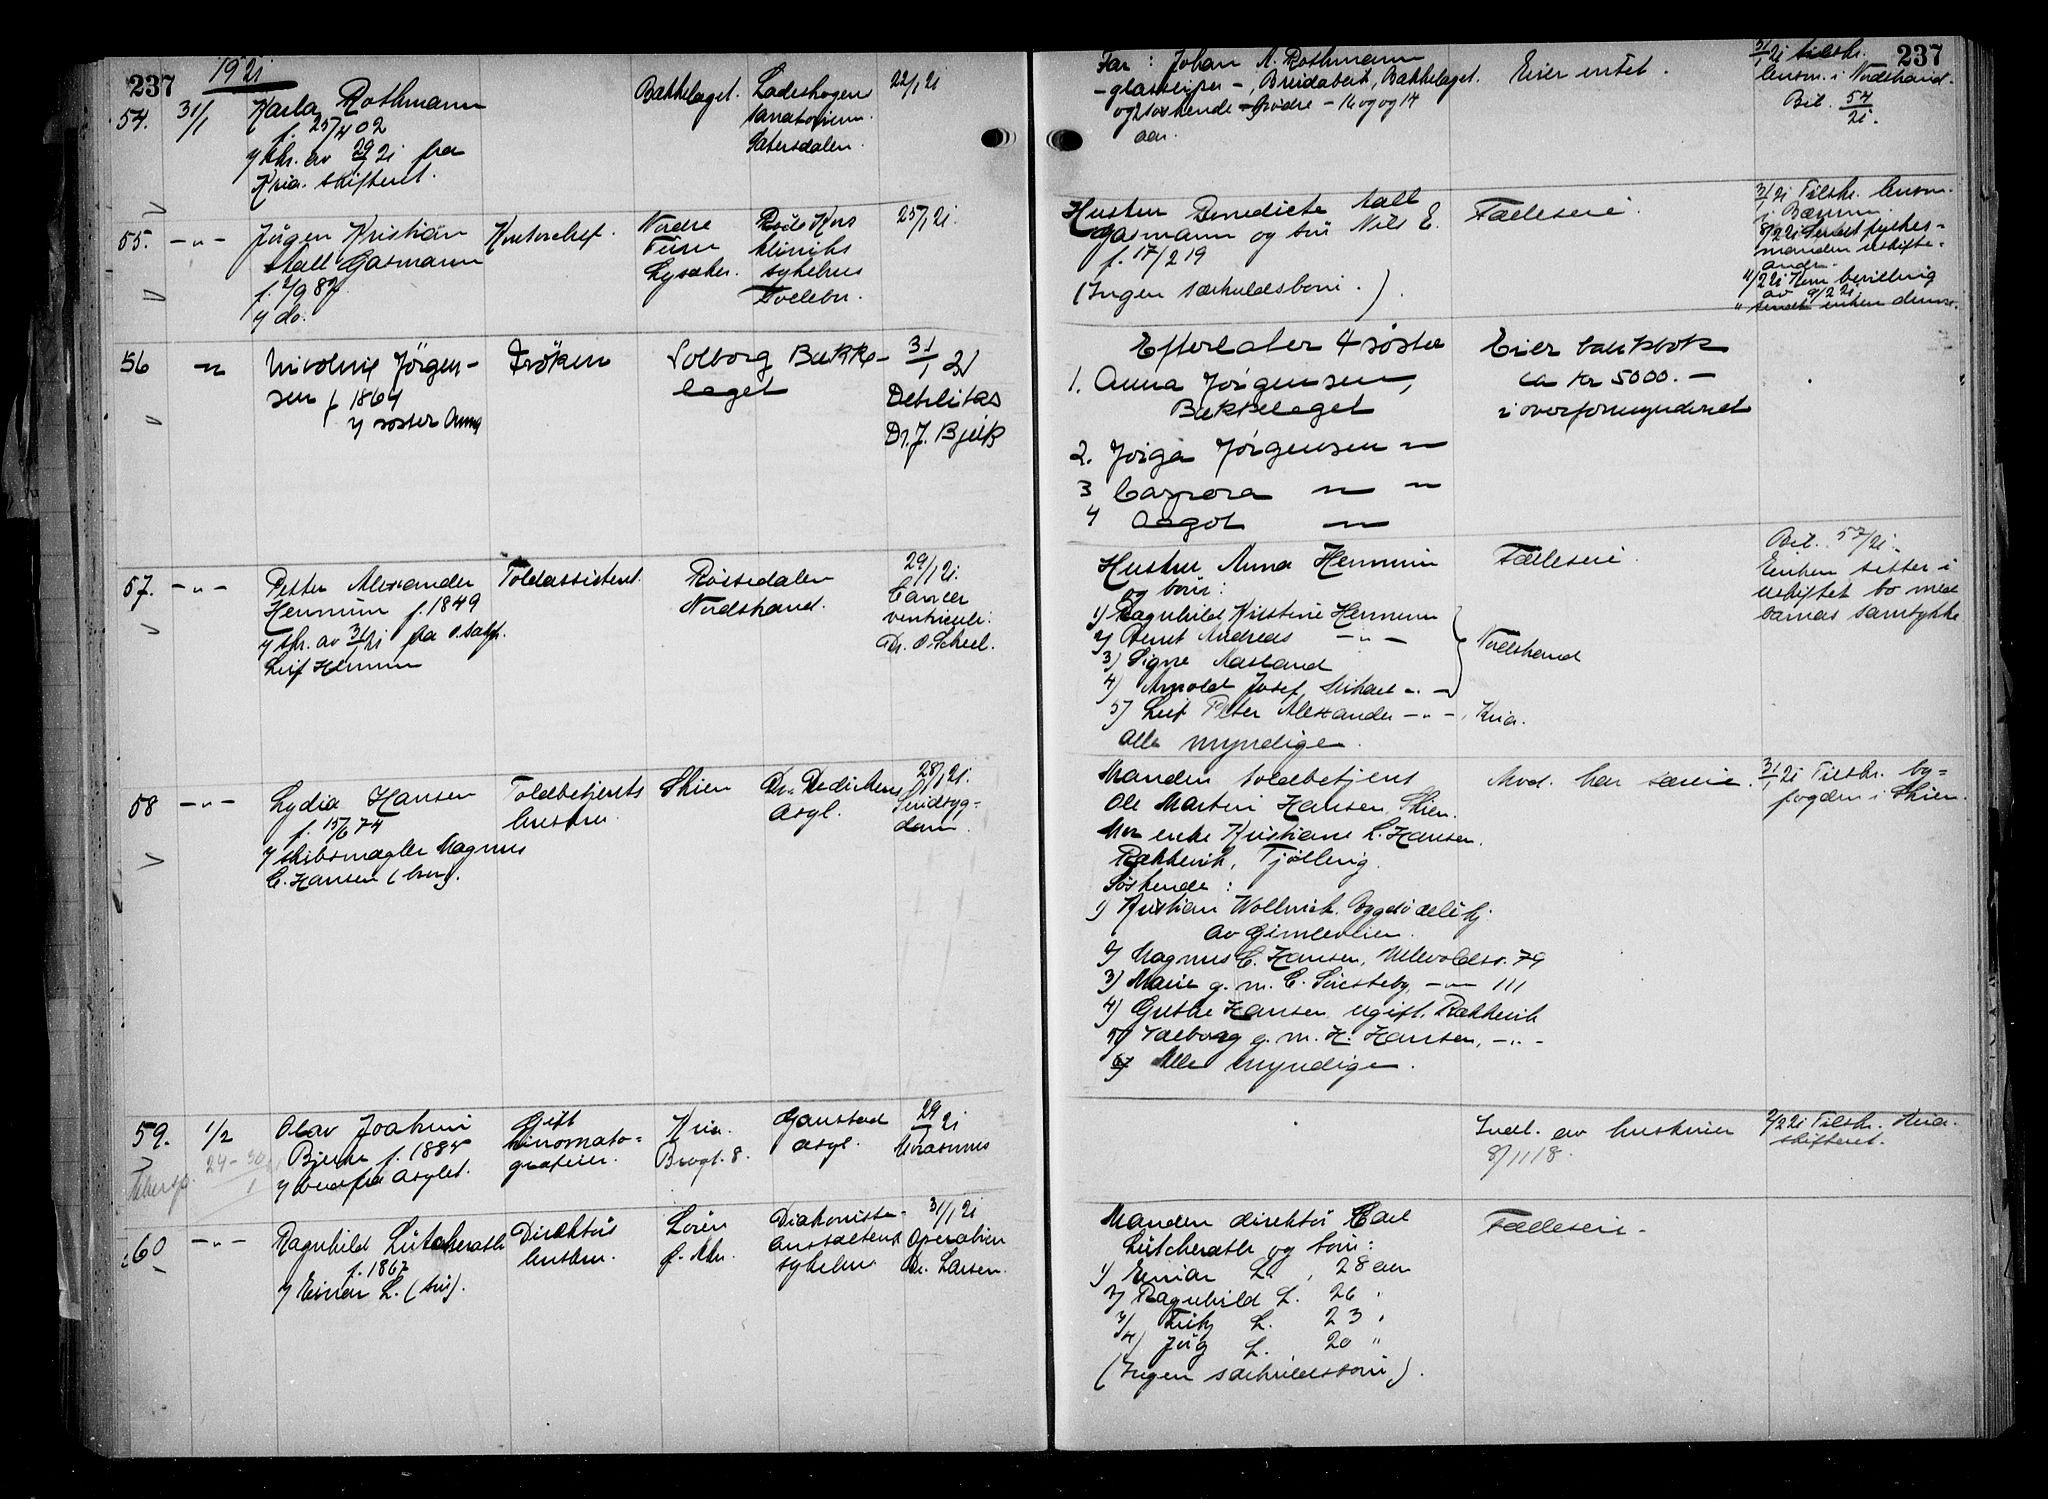 237
1921
54. 31/1 Karla Rothmann
f. 25/4 02
y skr. av 29/1 21 fra
Kria. skifteret.
Bækkelaget.
Ladeshogen
sanatorium.
Sætersdalen.
22/1 21
55. -"- Jörgen Kristian
Aall Gasmann
f. 2/9 87
y do.
Kontorchef.
Nordre
Furu
Lysaker.
Röde Kors
kliniks
sykehus
25/1 21.
56 -"- Nicoline Jörgen-
sen f 1864
y søster Anna
Fröken
Solborg Bække-
laget
31/1 21
Debilitas
Dr. J. Bjerk
57. -"- Petter Alexander
Hennum f. 1849
y skr. av 31/1 21 fra
Leif Hennum
Toldassistent.
Roisedalen
Nordstrand.
29/1 21.
Cancer
ventriculi.
Dr. O. Scheel.
58 -"- Lydia Hansen
f. 15/6 74
y skibsmægler Magnus
C. Hansen (bror).
Toldbetjents
hustru.
Skien
Dr. Dedichens
asyl.
28/1 21.
Sindsyg-
dom.
59. 1/2 Olav Joakim
Bjerke f. 1884
y bud fra asylet.
Gift
kinomato-
grafeier.
Kria.
Brogt. 8.
Gaustad
asyl.
29/1 21
Marasmus
60 -"- Ragnhild Lütcherath
f. 1867
y Einar L. (sön).
Direktörs
hustru.
Lören
ø. Aker.
Diakonisse-
anstaltens
sykehus.
31/1 21
Operation
Dr. Larsen.
237
Far: Johan A. Rothmann
- glassliper -, Breidablik, Bækkelaget.
og 2 søskende - brødre - 16 og 14
aar.
Eier intet.
31/1 21 tilskr.
lensm. i Nordstrand.
Bil. 54/21.
Hustru Benedicte Aall
Gasmann og sön Nils E.
f. 17/2 19
(Ingen særkuldsbörn.)
Fælleseie.
31/1 21 Tilskr. lensm.
i Bærum
11/2 21 Kem bevilling
av 9/2 21
sendt enken dennes.
Efterlater 4 søstre
1. Anna Jörgensen,
Bækkelaget
2. Jörga Jörgensen -"-
3 Caspara -"- -"-
4 Aagot -"-
Eier bankbok
ca kr 5000.-
i overformynderiet
Hustru Anna Hennum
og börn:
1) Ragnhild Kristine Hennum
2) Bernt Andreas -"-
3) Signe Aasland
4) Arnold Josef Mikael -"-
Nordstrand
5) Leif Peter Alexander -"-, Kria.
Alle myndige.
Fælleseie.
Bil. 57/21.
Enken sitter i
uskiftet bo med
barnas samtykke
Manden toldbetjent
Ole Martin Hansen, Skien.
Mor enke Kristiane L. Hansen,
Rækkevik, Tjölling.
Söskende:
1) Kristian Wollnick, Bygdö allé hj.
av Gimleveien.
2) Magnus C. Hansen, Ullevoldsv. 79
3) Marie g. m. C. Sinsteby, -"- 111
4) Grethe Hansen, ugift, Rækkevik
5) Valborg g. m. H. Hansen, -"-
Alle myndige.
Avd. har særeie.
31/1 21 Tilskr. by-
fogden i Skien.
Indl. av hustruen
8/11 18.
2/2 21 Tilskr. Kria.
skifteret.
Manden direktör Carl
Lütcherath og börn:
1) Einar L., 28 aar
2) Ragnhild L. 26 "
3) L. 23 "
4) L. 20 "
(Ingen særkuldsbörn).
Fælleseie.